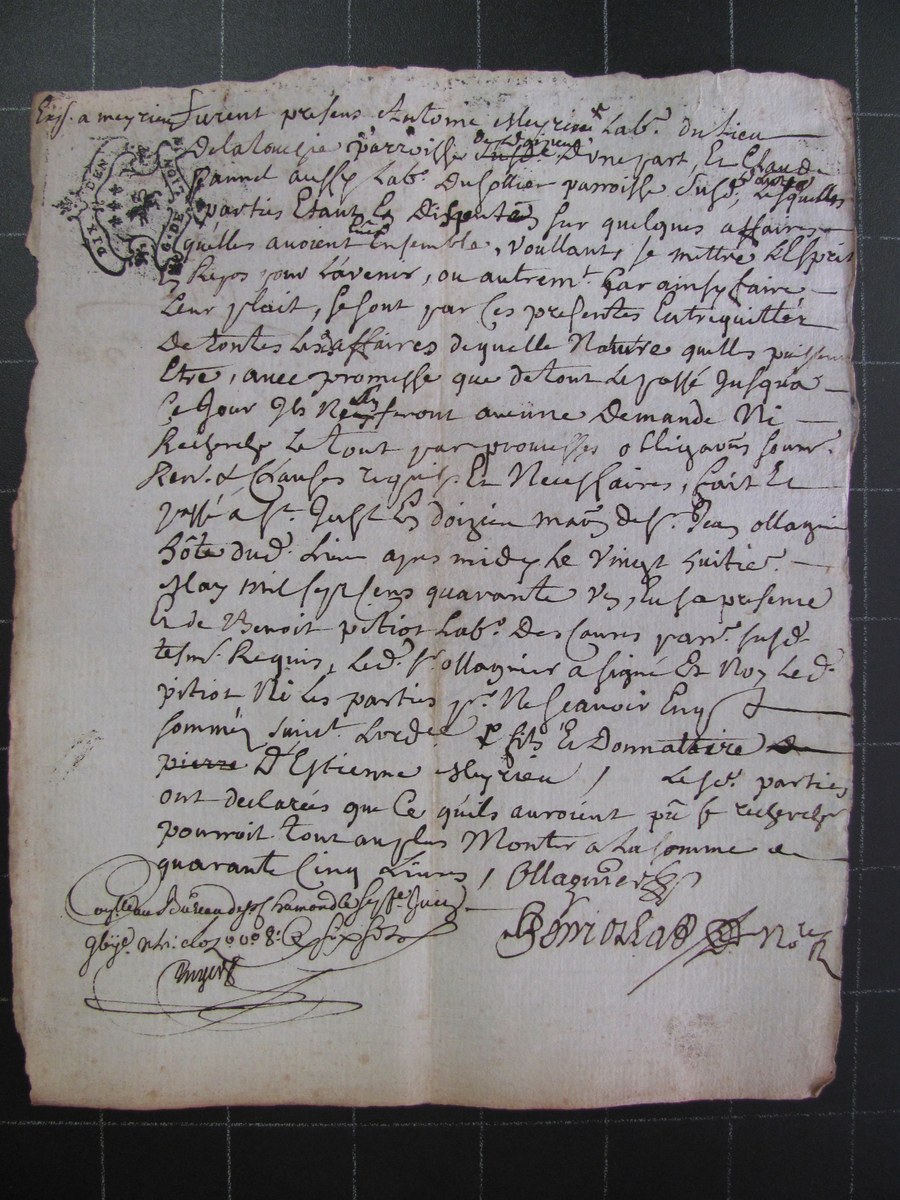 Exp. a meyrieu furent presens Antoine Meyrieu Lab.r du lieu
De la parroisse de doizieu D'une part, Et Claude
aussy Lab.r Du Sollier parroisse Susd. Lesquelles
parties Etant En Dispute Sur quelques affaires
quelles avoient Ensemble, voullant se mettre L'Esprit
En Repos pour L'avenir, ou autrem.t Car ainsy faire
Leur plait, se sont par Ces presentes Entrequittés
De toutes Les affaires de quelle Nature quelles puissent
Etre, avec promesse que de tout Le passé Jusqua
Ce Jour Ils Ne feront aucune Demande Ni
Recherche Le tout par promesses obligaons soum.
Ren. & Clauses requis. Et Necessaires, fait Et
passé a St. Just En doizieu maion de Sr. Jean ollagnier
hôte dud. Lieu apres midy Le vingt huitie.
May mil sept cens quarante un, En la presence
Et de Benoit pitiot Lab.r Des parr. susd.
tesm. Requis, Led. Sr. ollagnier a signé Et Non Led.
pitiot Ni Les parties pr. Ne Scavoir Enq
sommés suivt. L'orde. fils Et Donnataire de
pierre D'Estienne Meyrieu / Lesd. parties
ont declarées que Ce qu'ils auroient pû se rechercher
pourroit tout au plus Monter a La somme de
quarante Cinq Livres / Ollagnier
Conlle au Bureau de St Chamond le sept Juin
six sols
Nore
DIX DEN
G. DE LION